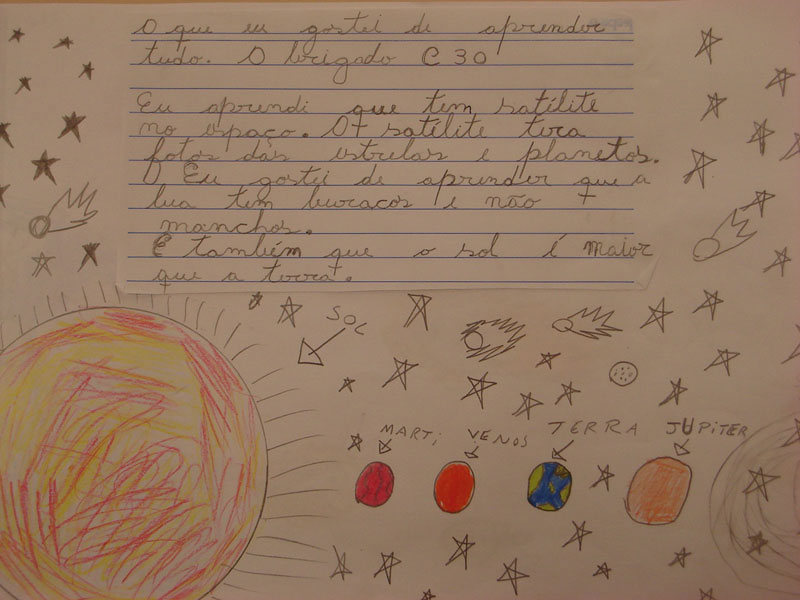 O que eu gostei de aprender
tudo. O brigado C 30
Eu aprendi que tem satélite
no espaço. Ot satélite tira
fotos das estrelas e planetos.
O Eu gostei de aprender que a
lua tem buracos e não
manchos.
E também que o sol é maior
que a terra.
SOL
MARTI VENOS TERRA JUPITER